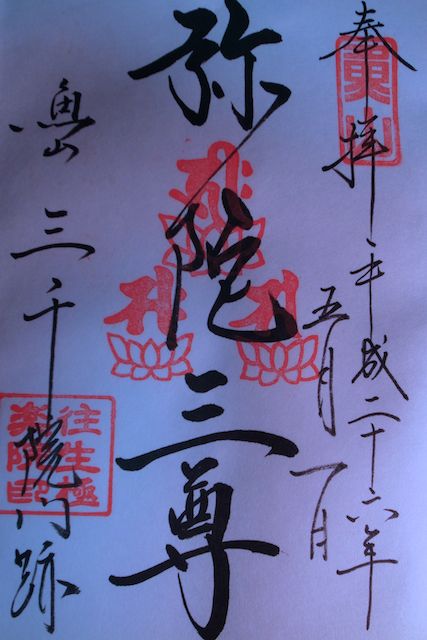 奉拝 平成二十六年
五月一日
魚山
弥陀三尊
魚山 三千院門跡
往生極
楽院印